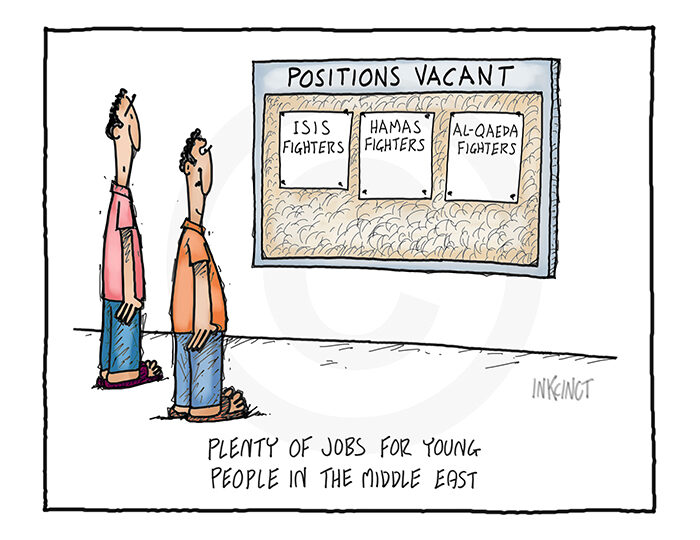 POSITIONS VACANT
ISIS
FIGHTERS
HAMAS
FIGHTERS
AL-QAEDA
FIGHTERS
INKCINCT
PLENTY OF JOBS FOR YOUNG
PEOPLE IN THE MIDDLE EAST